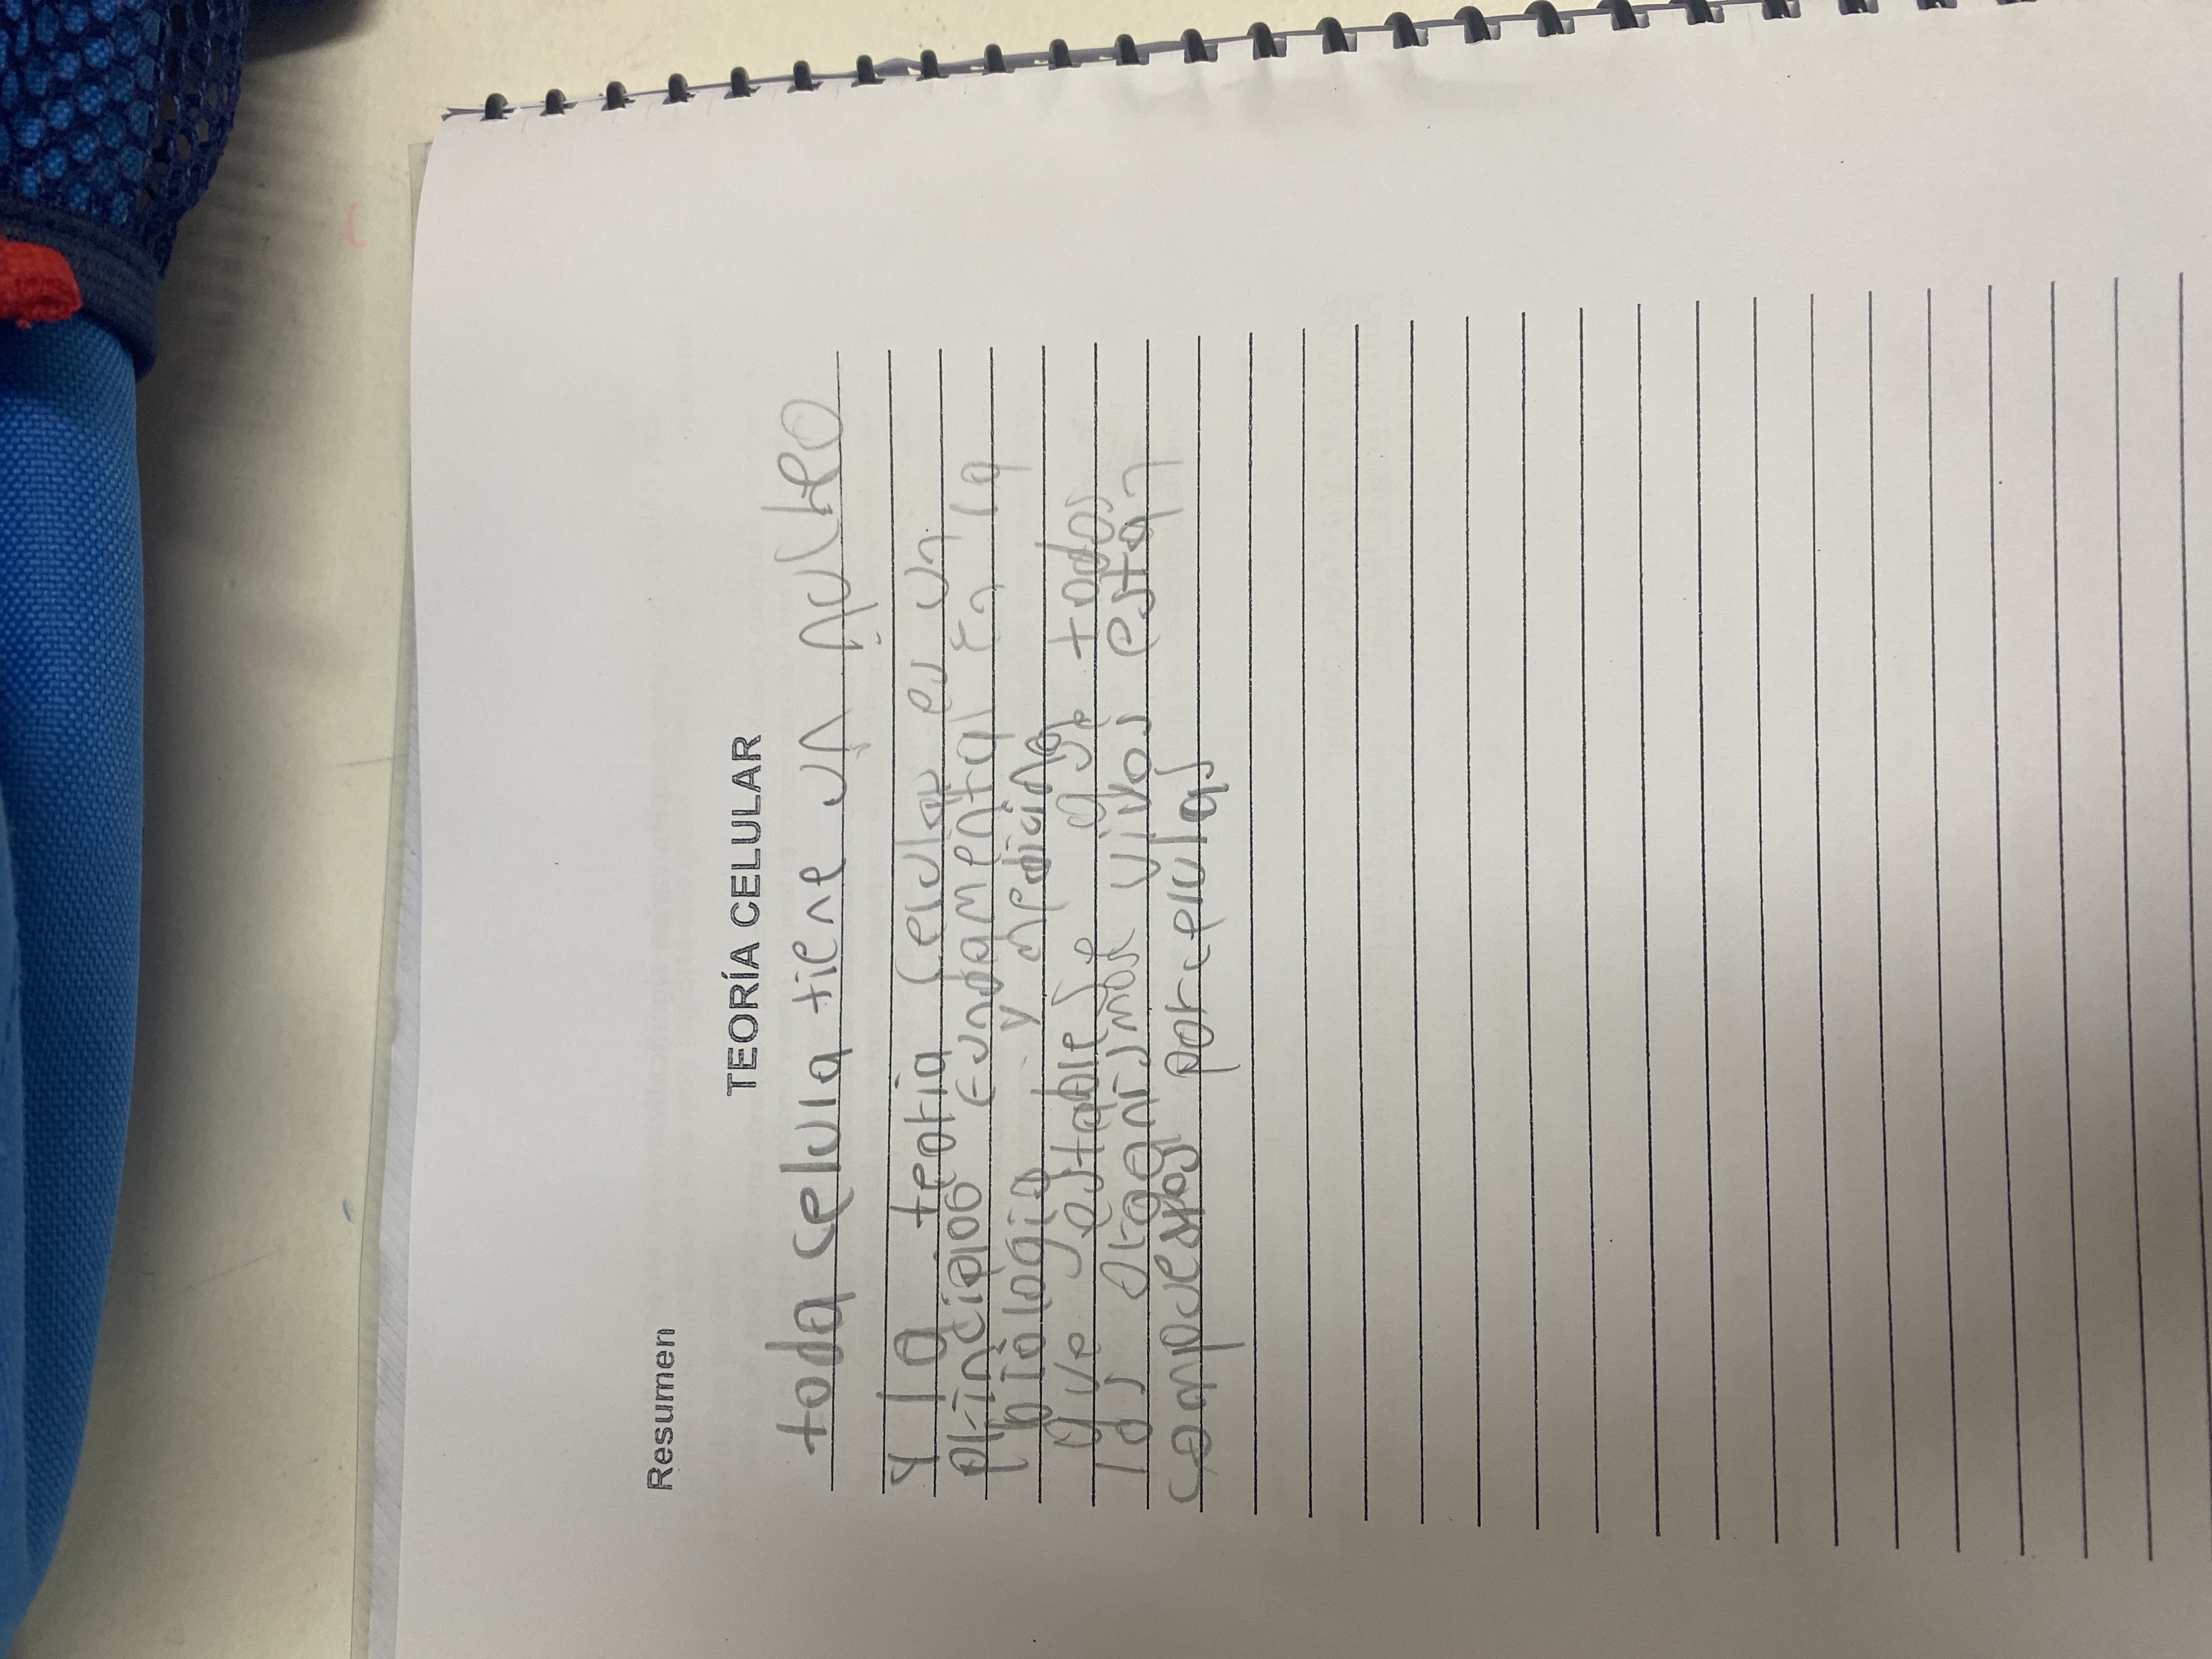 Resumen
TEORÍA CELULAR
toda celula tiene un nucleo
y la teoria celular es un
principio fundamental En la
biologia y medicina
que establece que todos
los organismos vivos estan
compuestos por celulas